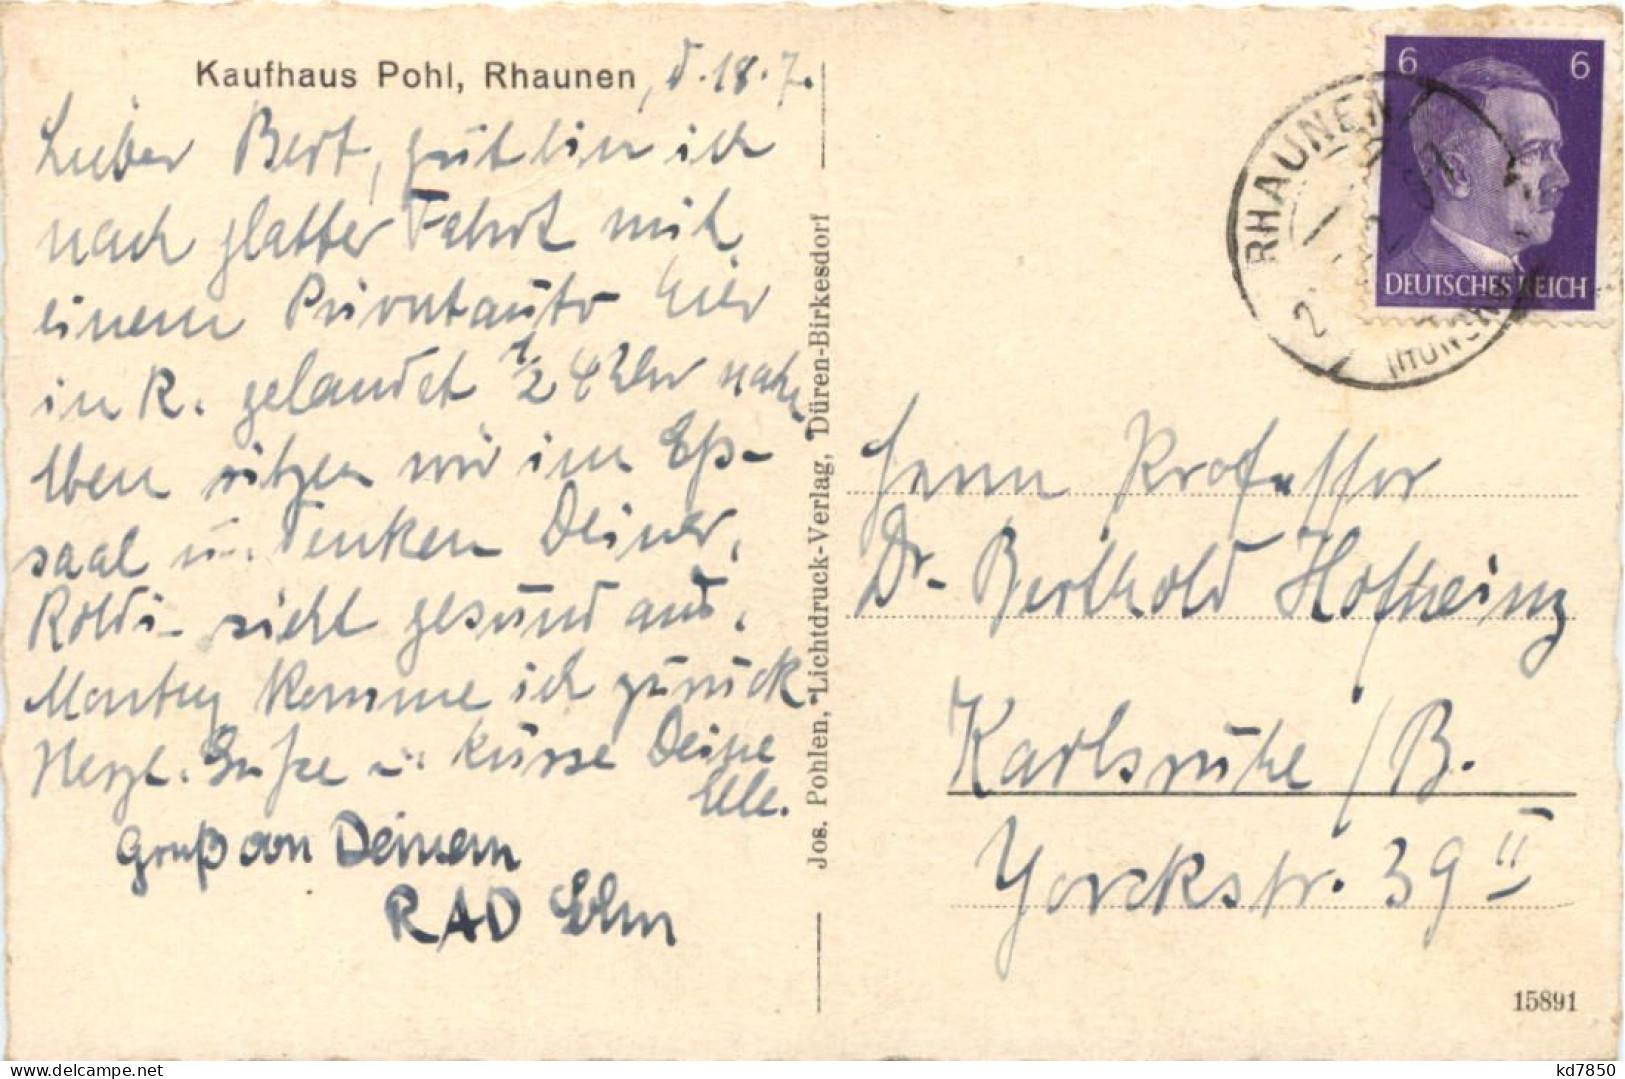 Kaufhaus Pohl, Rhaunen, d. 18.7.
Lieber Bert, gut bin ich
nach glatter Fahrt mit
einem Privatauto hier
in R. gelandet 1/2 4 Uhr nach
Eben sitzen wir im Eß-
saal u. denken Deiner,
Roldi sieht gesund aus.
Montag komme ich zurück
Herzl. Grüße u. Küsse Deine
Elle.
Gruß von Deinem
RAD Sohn
Jos. Pohlen, Lichtdruck-Verlag, Düren-Birkesdorf
6 6
DEUTSCHES REICH
RHAUNEN
Herrn Professor
Dr. Berthold Hofheinz
Karlsruhe / B.
Yorckstr. 39 II
15891
kd7850